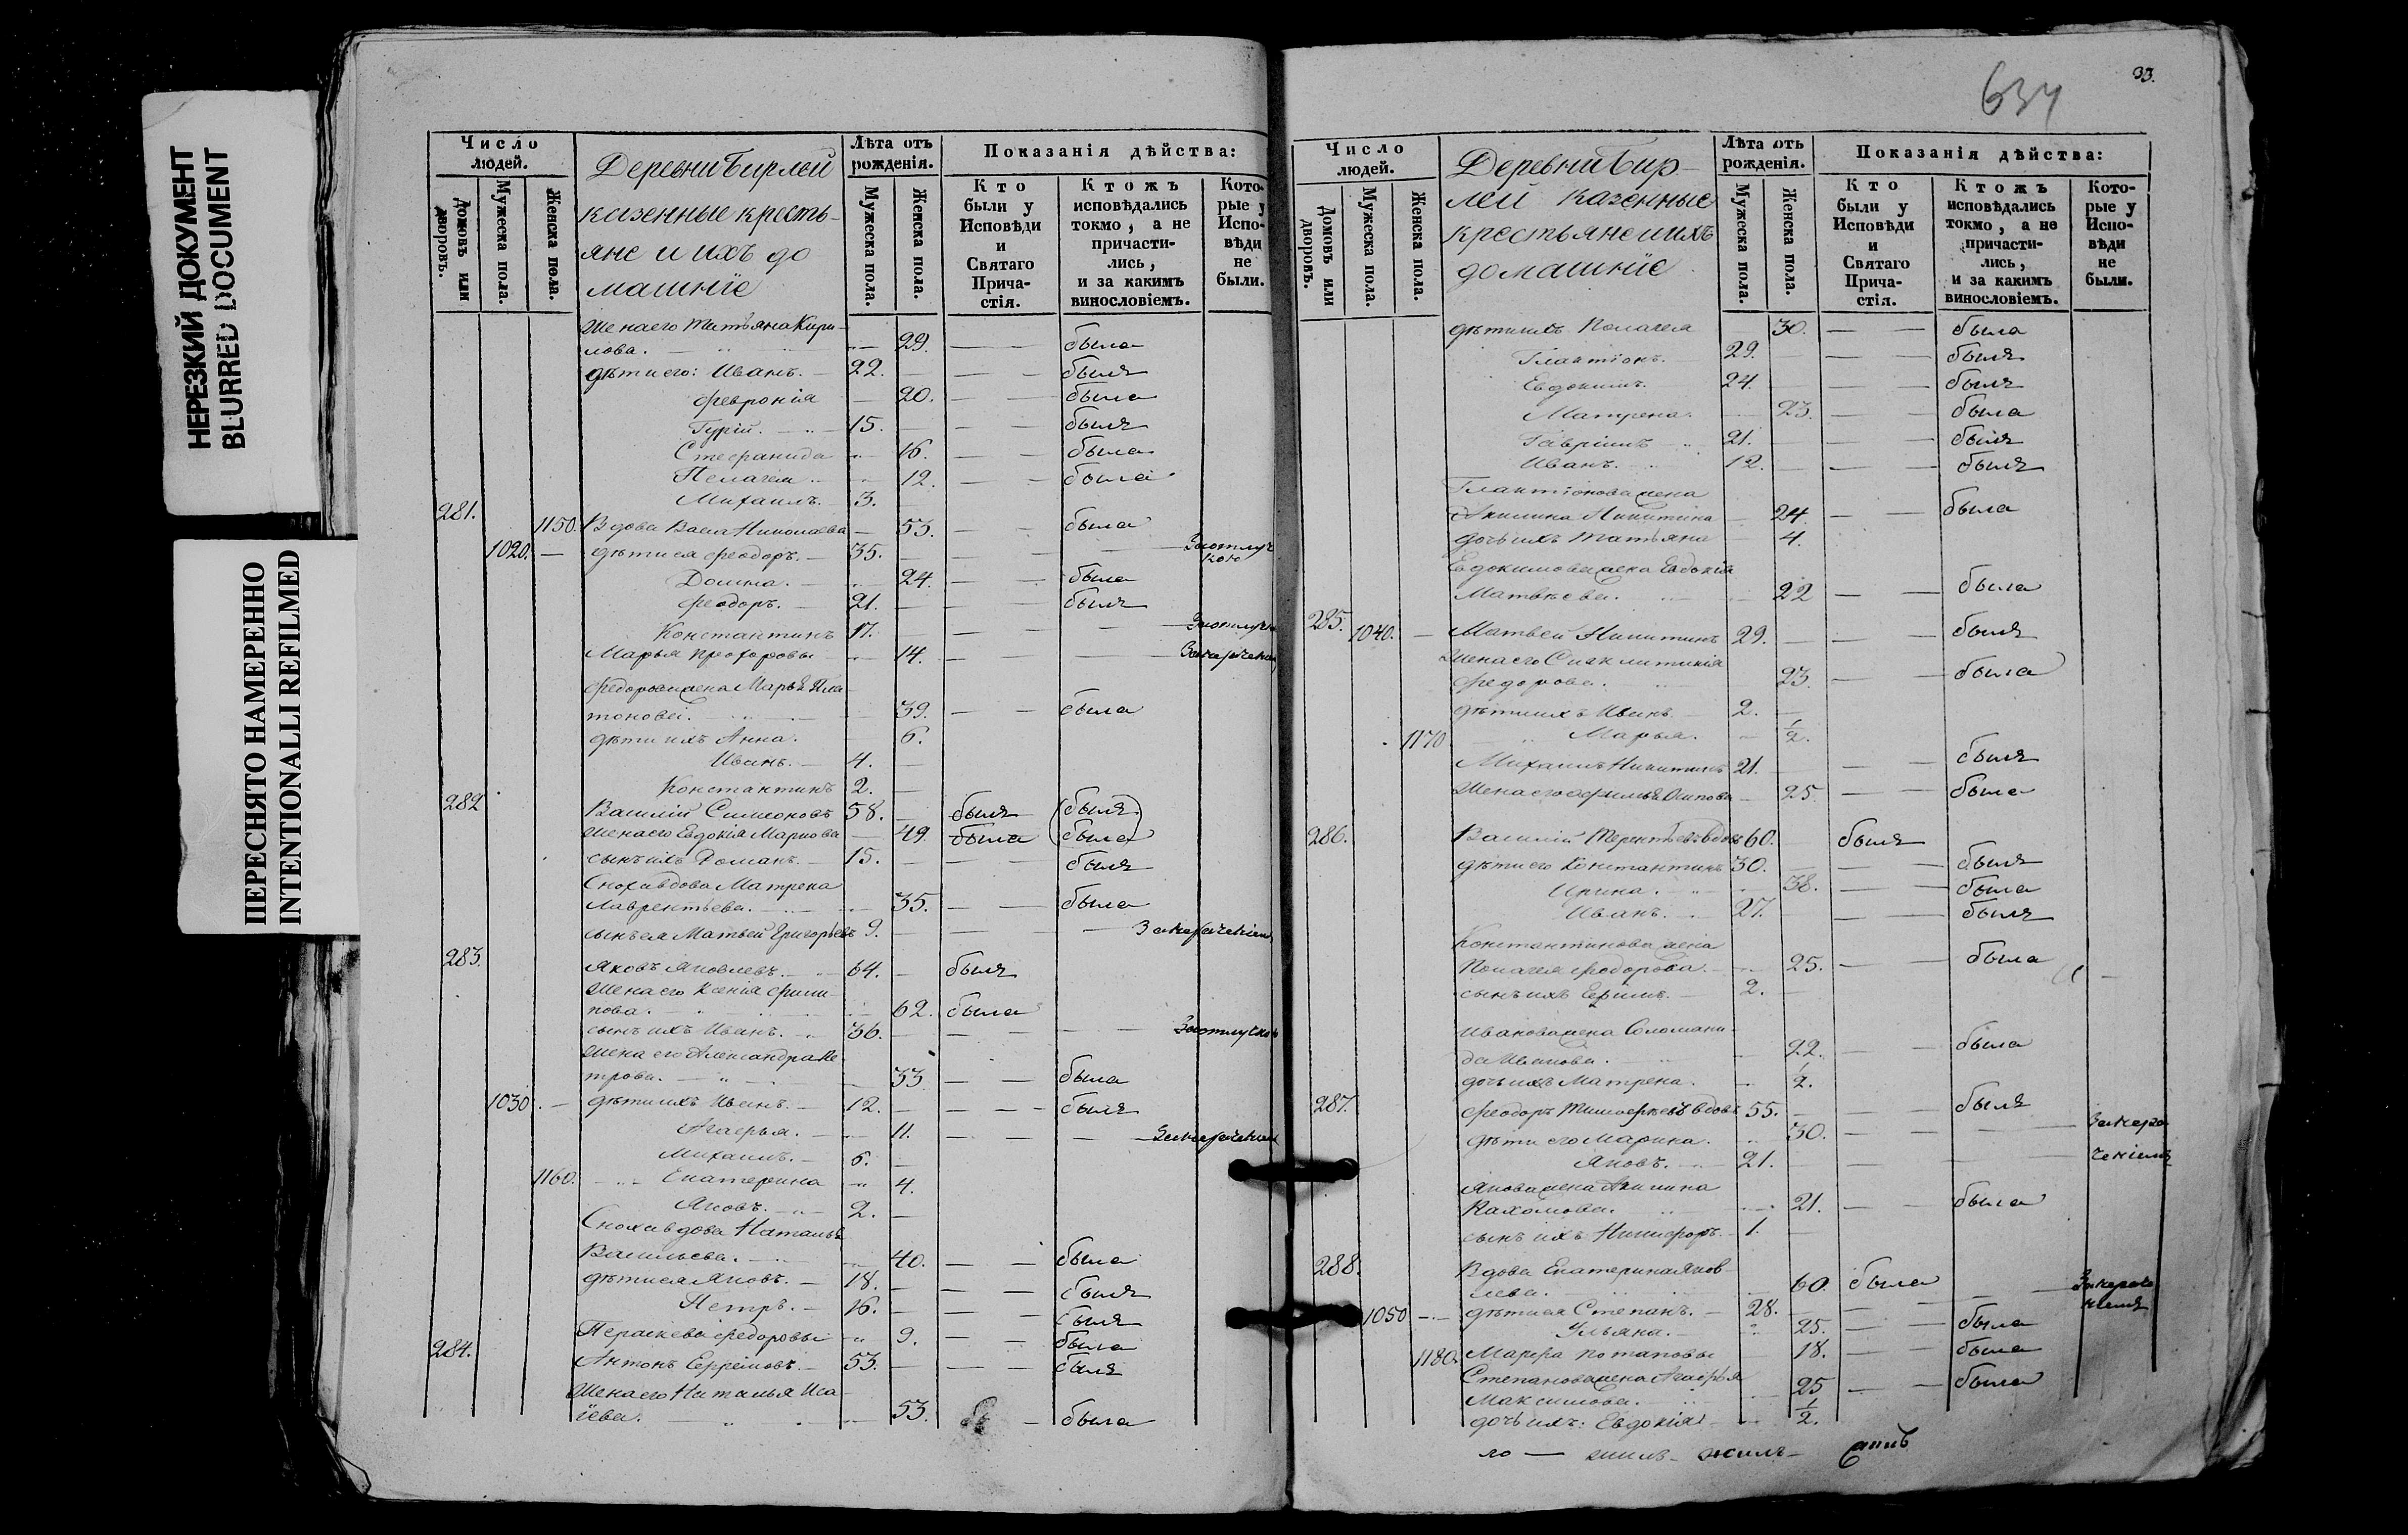 НЕРЕЗКИЙ ДОКУМЕНТ
BLURRED DOCUMENT
ПЕРЕСНЯТО НАМЕРЕННО
INTENTIONALLI REFILMED
Число людей.
Домовъ или дворовъ.
Мужеска пола.
Женска пола.
Деревни Бирлей
казенные кресть-
яне и ихъ до
машніе
Лѣта отъ рожденія.
Мужеска пола.
Женска пола.
Показанія дѣйства:
Кто были у Исповѣди и Святаго Прича-стія.
Ктожъ исповѣдались токмо, а не причасти-лись, и за какимъ винословіемъ.
Кото-рые у Испо-вѣди не были.
Жена его Татьяна Кири-
лова. 29. была
дѣти его: Иванъ. 22. былъ
Февронія 20. была
Гурій. 15. былъ
Стефанида 16. была
Пелагея 12. была
Михаилъ. 3.
281. 1150. Вдова Васса Николаева 53. была
1020. дѣти ея Феодоръ. 35. За отлуч
кою
Домна. 24. была
Феодоръ. 21. былъ
Константинъ 17. За отлуч
Марья Прохоровы 14.
Федорова жена Марья Пла
тонова. 39. была
дѣти ихъ Анна. 6.
Иванъ. 4.
Константинъ 2.
282 Василій Симеоновъ 58. былъ (былъ)
Жена его Евдокія Маркова 49. была (была)
сынъ ихъ Романъ. 15. былъ
Сноха вдова Матрена
Лаврентьева. 35. была
сынъ ея Матвей Григорьевъ 9.
283. Яковъ Яковлевъ. 64. былъ
Жена его Ксенія Филип-
пова. 62. была
сынъ ихъ Иванъ. 36. За отлучкою
Жена его Александра Пе
трова. 33 была
1030. дѣти ихъ Иванъ. 12. былъ
Агафья. 11.
Михаилъ. 6.
1160. Екатерина 4.
Яковъ. 2.
Сноха вдова Наталья
Васильева. 40. была
дѣти ея Яковъ. 18. былъ
Петръ. 16. былъ
Параскева Федоровы 9. была
284. Антонъ Ефремовъ. 53. былъ
Жена его Наталья Иса-
іева. 53. была
634
33.
Число людей.
Домовъ или дворовъ.
Мужеска пола.
Женска пола.
Деревни Бир-
лей казенные
крестьяне и ихъ
домашніе
Лѣта отъ рожденія.
Мужеска пола.
Женска пола.
Показанія дѣйства:
Кто были у Исповѣди и Святаго Прича-стія.
Ктожъ исповѣдались токмо, а не причасти-лись, и за какимъ винословіемъ.
Кото-рые у Испо-вѣди не были.
дѣти ихъ Пелагея 30. была
Галактіонъ. 29. былъ
Евдокимъ. 24. былъ
Матрена. 23. была
Гавріилъ 21. былъ
Иванъ. 12. былъ
Галактіонова жена
Акилина Никитина 24. была
дочь ихъ Татьяна 4.
Евдокимова жена Евдокія
Матвѣева. 22 была
285. 1040. Матвей Никитинъ 29. былъ
Жена его Синклитикія
Федорова. 23. была
дѣти ихъ Иванъ 2.
1170 Марья. 1/2.
Михаилъ Никитинъ 21. былъ
Жена его Осипова 25. была
286. Василій Терентьевъ вдовъ 60. былъ
дѣти его Константинъ 30. былъ
Ирина. 38. была
Иванъ. 27. былъ
Константинова жена
Пелагея Федорова. 25. была
сынъ ихъ Ефимъ. 2.
Иванова жена Соломани
да Иванова. 22. была
дочь ихъ Матрена. 1/2.
287. Феодоръ Тимофеевъ вдовъ 55. былъ
дѣти его Марина. 30.
Яковъ. 21.
Яковлева жена Акилина
Пахомова. 21. была
сынъ ихъ Никифоръ. 1.
288. Вдова Екатерина Яков
лева. 60. была
1050 дѣти ея Степанъ. 28.
Ульяна. 25. была
1180. Марфа Потаповы 18. была
Степанова жена Агафья
Максимова. 25 была
дочь ихъ: Евдокія 1/2.